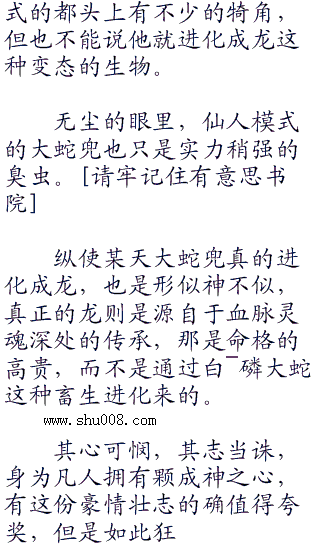 式的都头上有不少的犄角，
但也不能说他就进化成龙这
种变态的生物。
无尘的眼里，仙人模式
的大蛇兜也只是实力稍强的
臭虫。[请牢记住有意思书
院]
纵使某天大蛇兜真的进
化成龙，也是形似神不似，
真正的龙则是源自于血脉灵
魂深处的传承，那是命格的
高贵，而不是通过白¯磷大蛇
这种畜生进化来的。
www.shu008.com
其心可悯，其志当诛，
身为凡人拥有颗成神之心，
有这份豪情壮志的确值得夸
奖，但是如此狂